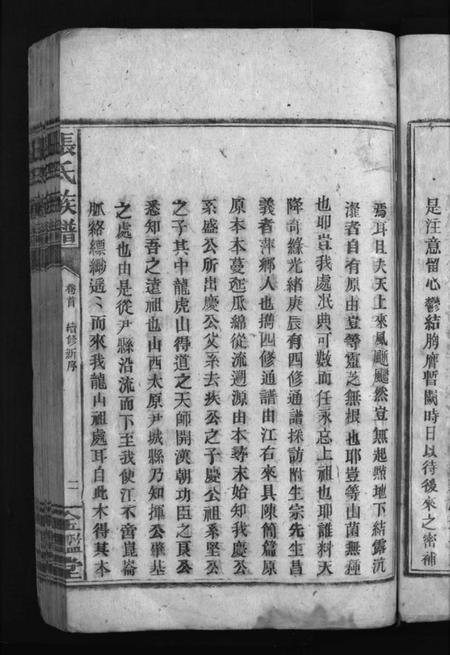 是汪意留心鬱結胸膺暫闕時日以待後來之密補
焉耳且夫天上來風颺颺然豈無起點地下結露沆
瀣者自有原由豈等靈芝無根也耶豈等山菌無種
也耶豈我處氓典可數而任永忘上祖也耶誰料天
降奇緣光緒庚辰有四修通譜採訪附生宗先生昌
義者萍鄉人也攜四修通譜由江右來具陳簡篇原
原本本蔓延瓜綿從流溯源由本尋末始知我慶公
系盛公所出慶公父系去疾公之子慶公祖系堅公
之子其中龍虎山得道之天師開漢朝功臣之良公
悉知吾之遠祖也山西太原尹城縣乃知揮公肇基
之處也由是從尹縣沿流而下至我使江不啻崑崙
脈絡縹緲通丶而來我龍山祖處耳自此木得其本
張氏族譜
卷首 續修新序
二
金鑑堂